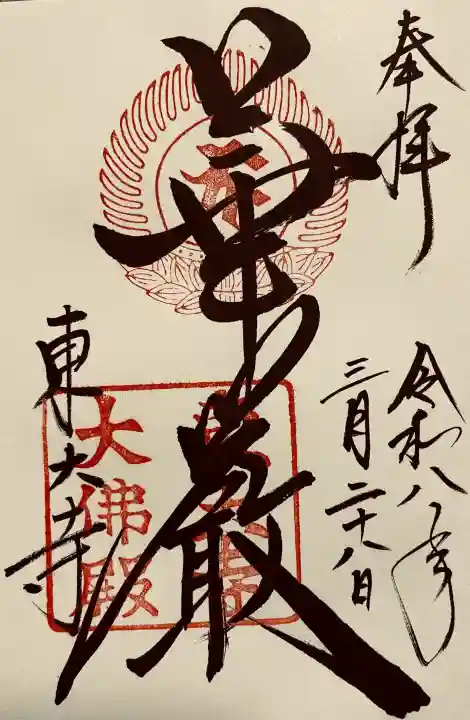 奉拝
令和八年
三月二十八日
華嚴
東大寺
大佛殿